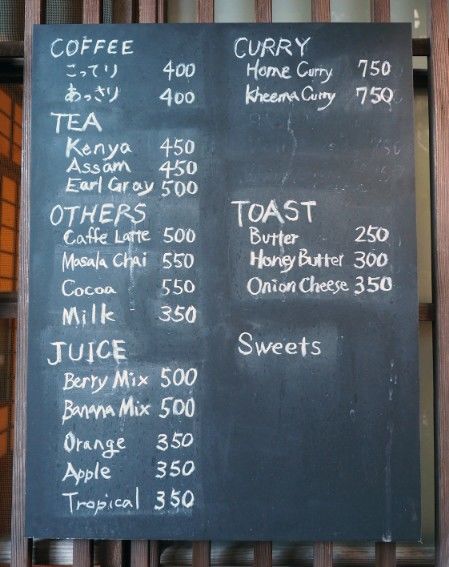 COFFEE
こってり 400
あっさり 400
TEA
Kenya 450
Assam 450
Earl Gray 500
OTHERS
Caffe Latte 500
Masala Chai 550
Cocoa 550
Milk 350
JUICE
Berry Mix 500
Banana Mix 500
Orange 350
Apple 350
Tropical 350
CURRY
Home Curry 750
Kheema Curry 750
TOAST
Butter 250
Honey Butter 300
Onion Cheese 350
Sweets